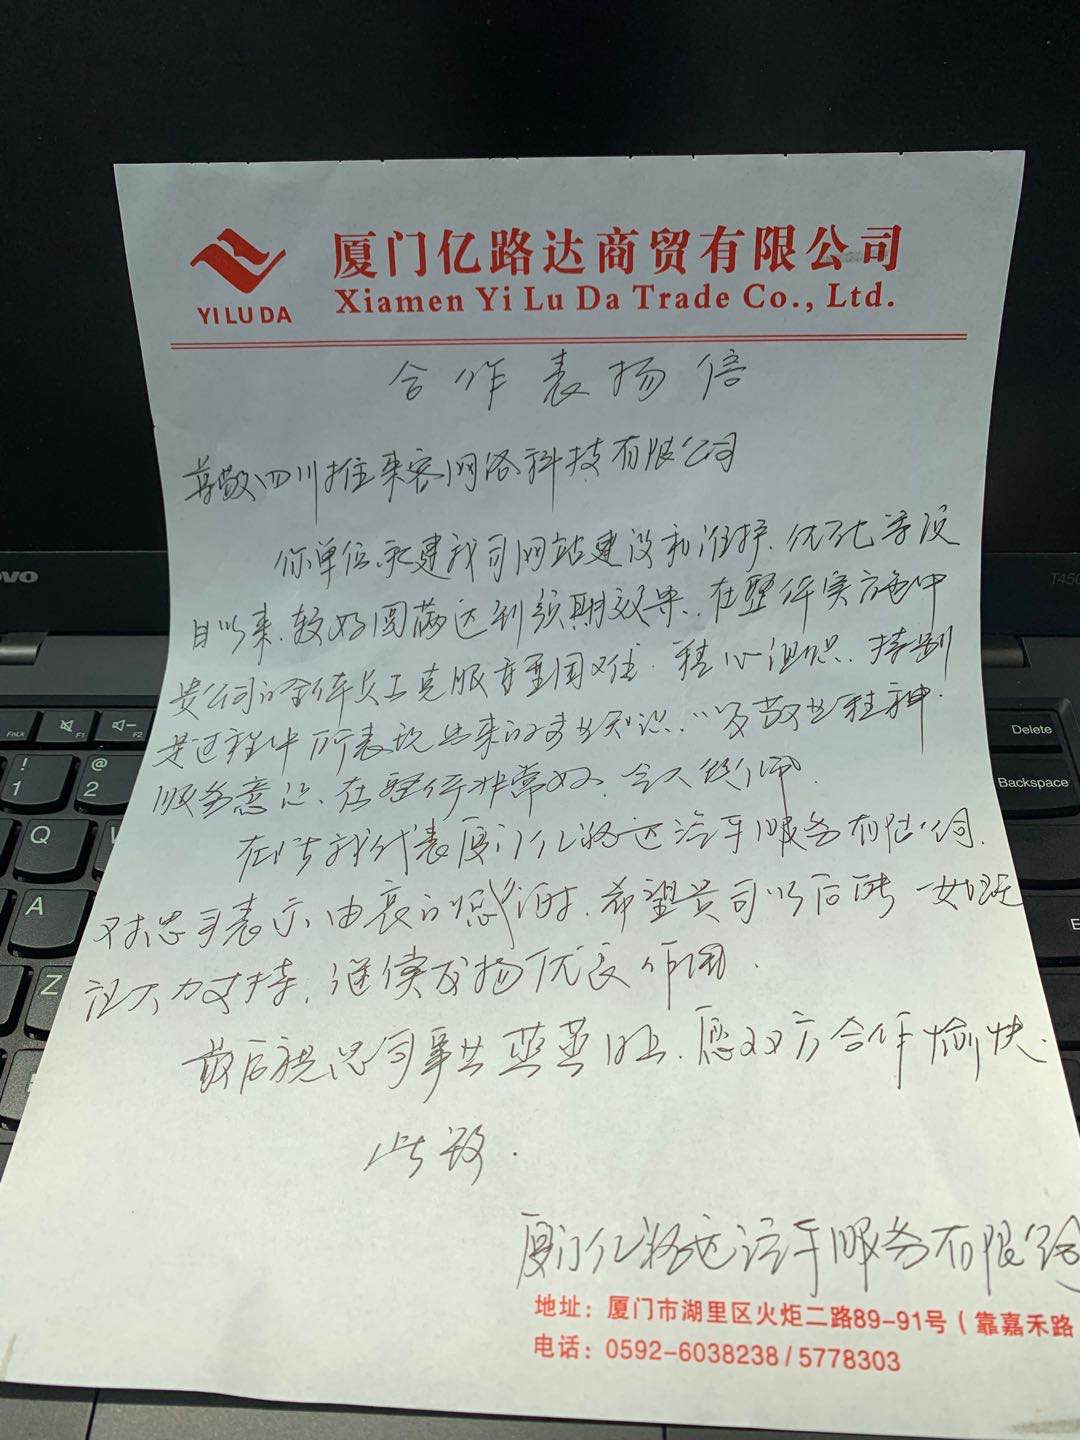 YI LU DA
厦门亿路达商贸有限公司
Xiamen Yi Lu Da Trade Co., Ltd.
合作表扬信
尊敬四川推来客网络科技有限公司
你单位承建我司网站建设和维护、优化等设
目以来、较好圆满达到预期效果、在整体实施中
贵公司的全体员工克服重重困难、精心组织、特别
是过程中所表现出来的专业知识、以及敬业精神、
服务意识、在整体非常好、令人钦佩.
在此我代表厦门亿路达汽车服务有限公司、
对您司表示由衷的感谢、希望贵司以后一如既
往大力支持、继续发扬优良作风.
最后祝您司事业蒸蒸日上、愿双方合作愉快.
此致.
厦门亿路达汽车服务有限公司
地址：厦门市湖里区火炬二路89-91号（靠嘉禾路
电话：0592-6038238/5778303
ovo
T450
FnLk
F1
F2
Delete
! 1
@ 2
Backspace
Q
A
Z
E